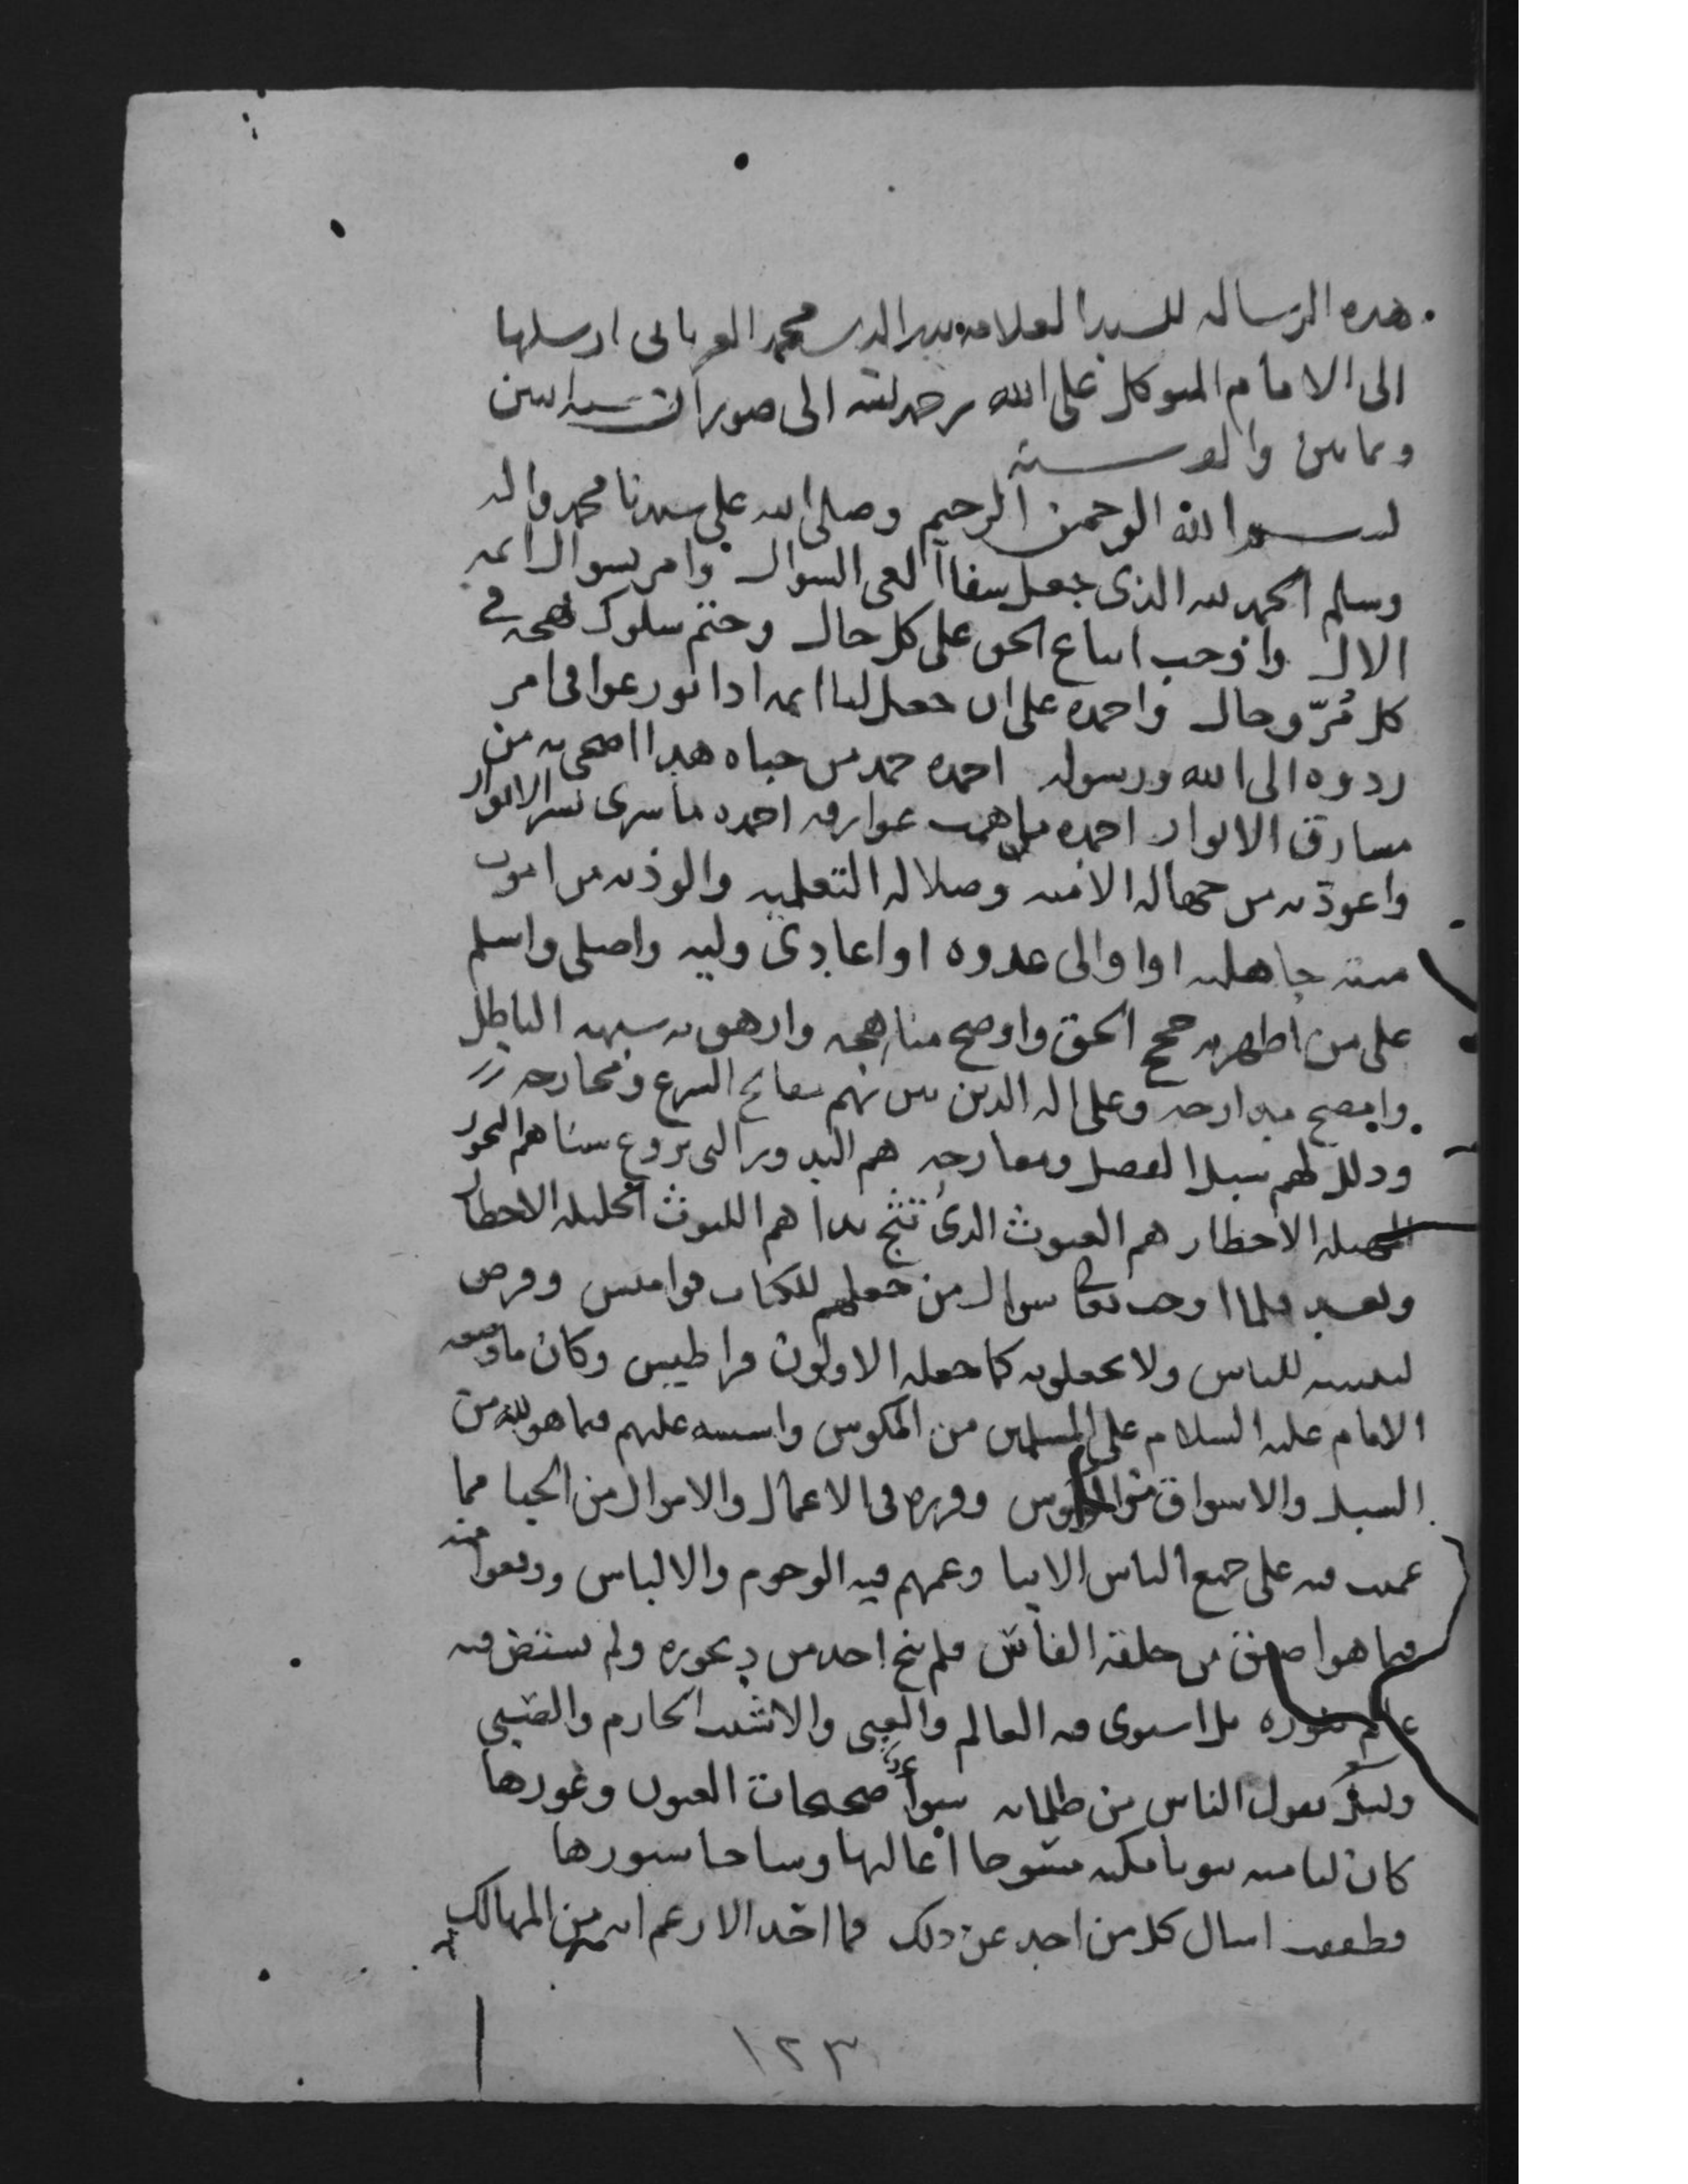 هذه الرسالة للسيد العلامة بدر الدين محمد العرياني ارسلها
الى الامام المتوكل على الله رحمه الله الى ضوران سنة اثنين
وثمانين والف سنة
بسم الله الرحمن الرحيم وصلى الله على سيدنا محمد واله
وسلم الحمد لله الذي جعل شفاء العي السوال وامر بسوال ائمة
الال واوجب اتباع الحق على كل حال وحتم سلوك نهجه في
كل مر وحال واحمده على ان جعل لنا ائمة اذا تورعوا في امر
ردوه الى الله ورسوله احمده حمد من حباه هدا اضحى به من
مشارق الانوار احمده عوارفه احمده ما سرى الانوار
واعوذ به من جهالة الامنية وضلالة التعلمية والوذ به من اموت
ميتة جاهلية او اوالى عدوه او اعادى وليه واصلي واسلم
على من اظهر به حجج الحق واوضح مناهجه وازهق به شبهة الباطل
وعلى اله الذين بين بهم مفاتح الشرع ومخارجه
وذلل لهم سبل الفضل ومعارجه هم البدور التي سناهم البحور
الاخطار هم الغيوث الذي تثج نداهم الليوث الجليلة الاخطار
وبعد فلما اوجب تعالى سوال من جعلهم للكتاب قواميس وفرض
تبيينه للناس ولا يجعلونه كما جعله الاولون قراطيس وكان ما وضعه
الامام عليه السلام على المسلمين من المكوس واسسه عليهم فيما هو لله من
السبل والاسواق من المكوس وقرره في الاعمال والاموال من الجبا مما
عميت فيه على جميع الناس الانبا وعمهم فيه الوجوم والالباس ووقعوا منه
فيما هو اضيق من حلقة الفاس فلم ينج احد من ديجوره ولم يستضي فيه
عالم بنوره بل استوى فيه العالم والغبي والاشيب الحازم والصبي
وليل يقول الناس من ظلماته سواء صحيحات العيون وعورها
كان لنا منه بيوتا مسوحا اعاليها وساجا ستورها
وطفقت اسال كل من اجد عن ذلك فما احد الا زعم انه من المهالك
١٢٣